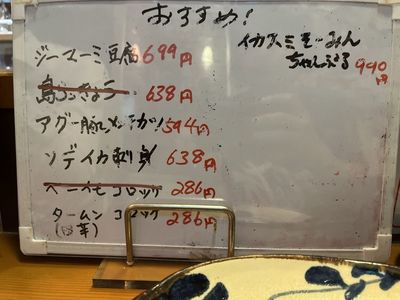 おすすめ!
ジーマーミ豆腐 699円
島らっきょう 638円
アグー豚メンチカツ 594円
ソデイカ刺身 638円
コロッケ 286円
タームンコロッケ 286円
(田芋)
イカスミそーみん
ちゃんぷる 990円